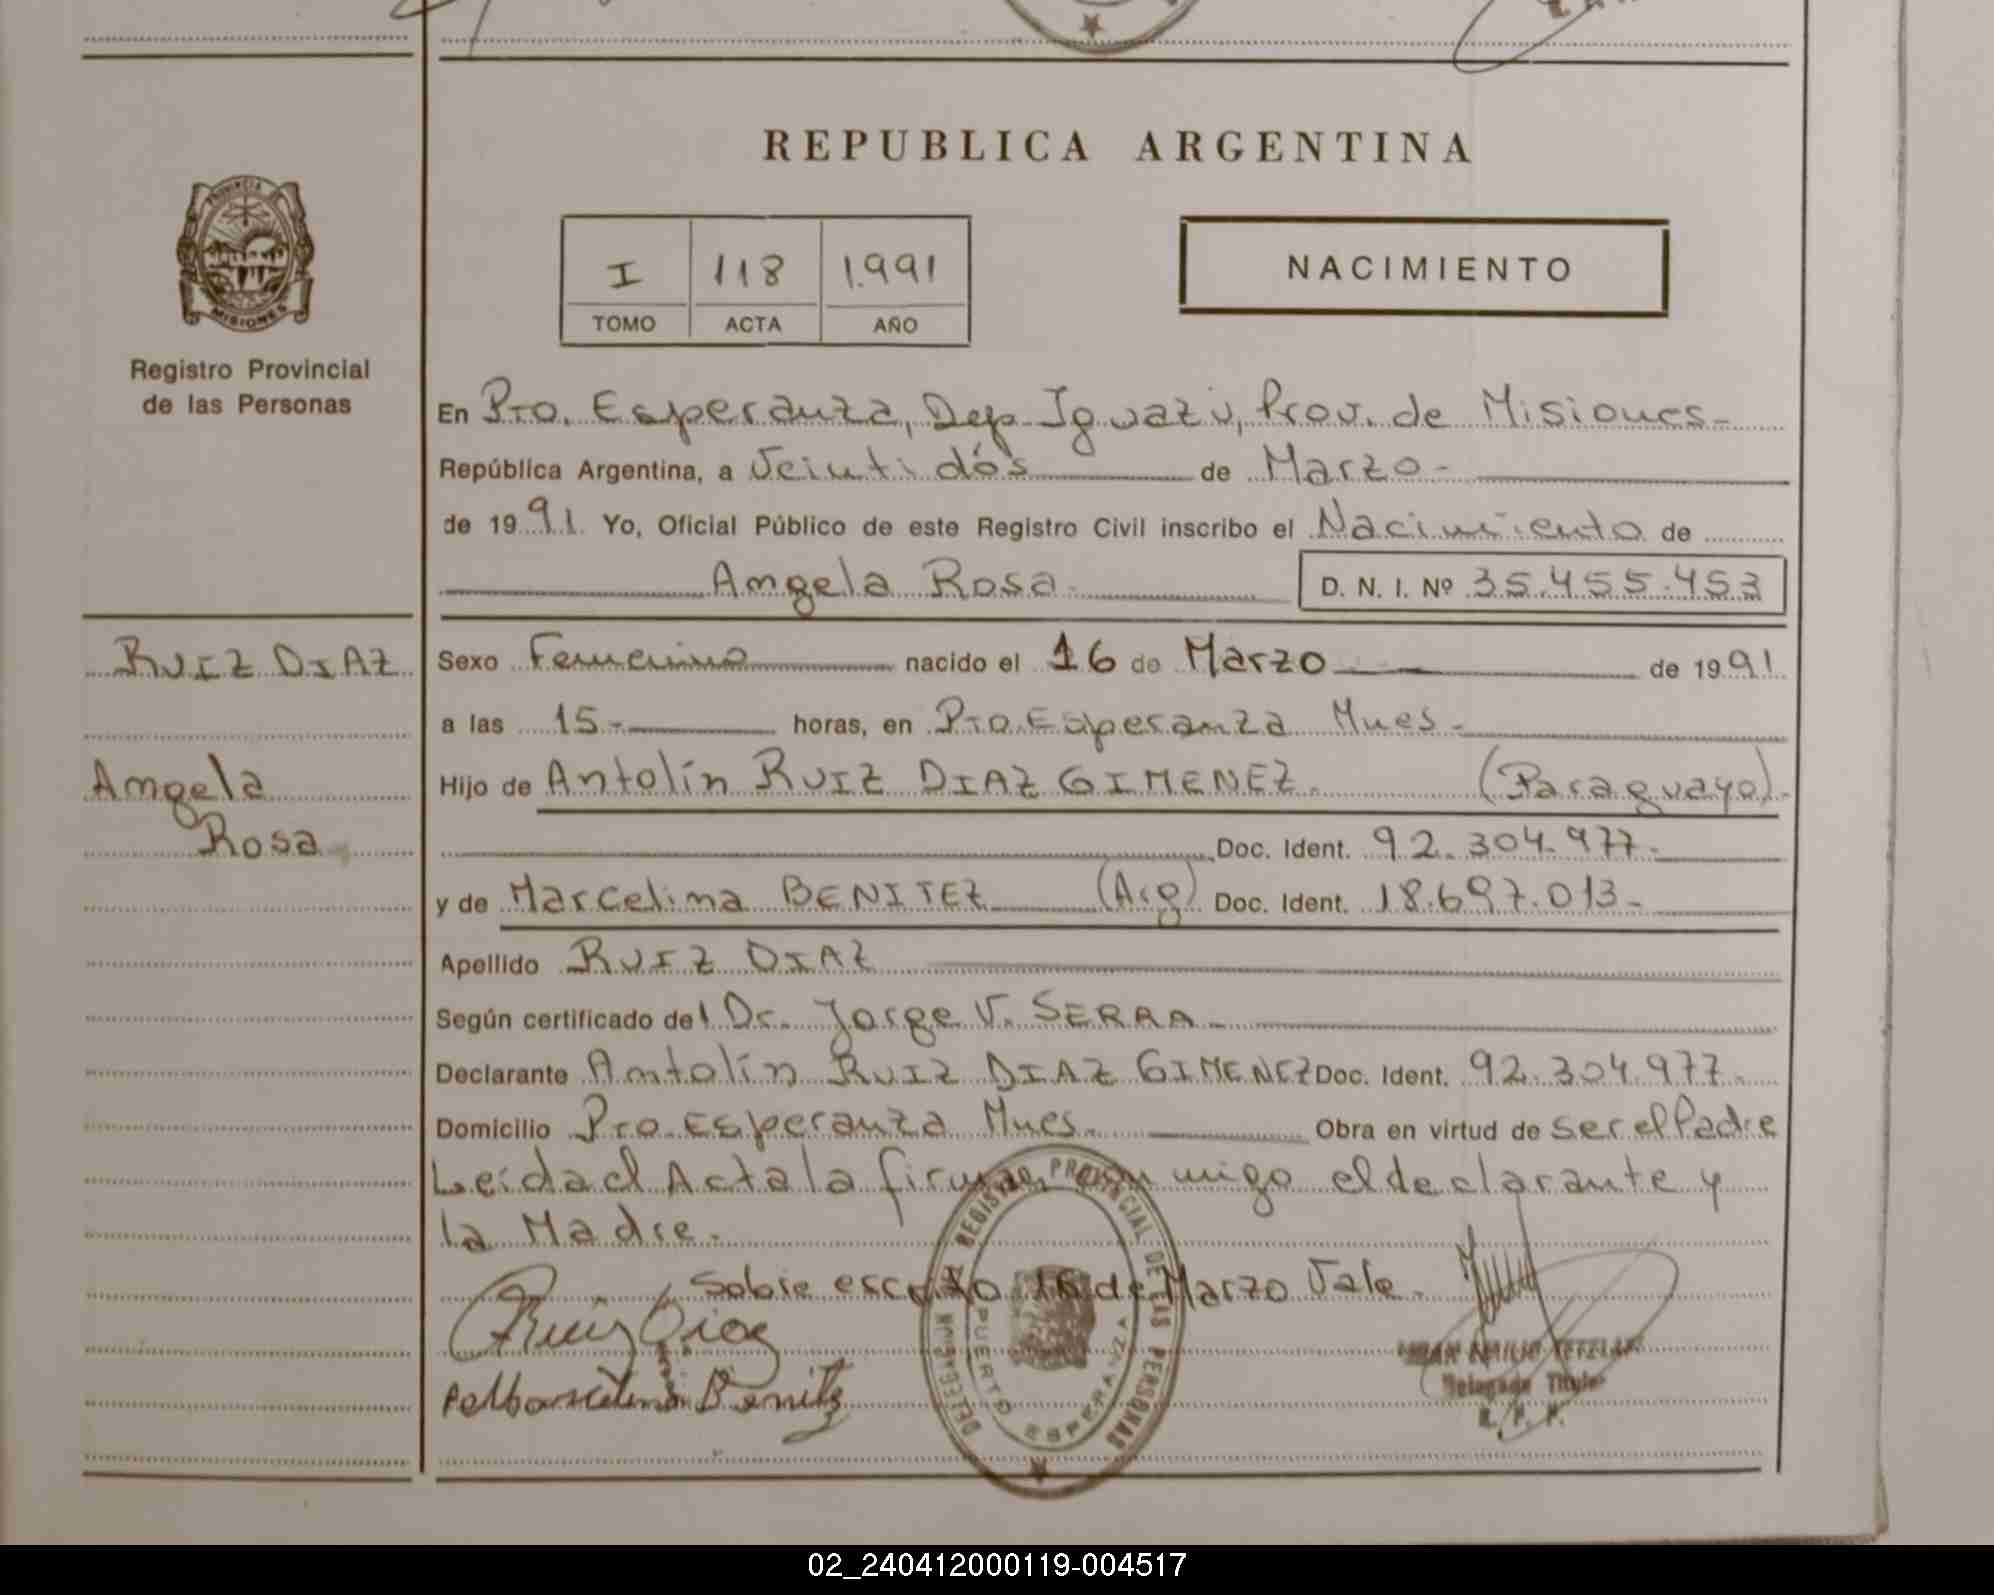 REPUBLICA ARGENTINA
PROVINCIA
MISIONES
Registro Provincial
de las Personas
I 118 1.991
TOMO ACTA AÑO
NACIMIENTO
En Pto. Esperanza, Dep. Iguazú, Prov. de Misiones-
República Argentina, a Veintidós de Marzo-
de 1991. Yo, Oficial Público de este Registro Civil inscribo el Nacimiento de
Angela Rosa- D. N. I. Nº 35.455.453
RUIZ DIAZ
Angela
Rosa
Sexo Femenino nacido el 16 de Marzo de 1991
a las 15- horas, en Pto. Esperanza Mnes-
Hijo de Antolín RUIZ DIAZ GIMENEZ. (Paraguayo)-
Doc. Ident. 92.304.977-
y de Marcelina BENITEZ (Arg) Doc. Ident. 18.697.013-
Apellido RUIZ DIAZ
Según certificado del Dr. Jorge V. SERRA-
Declarante Antolín RUIZ DIAZ GIMENEZ Doc. Ident. 92.304.977-
Domicilio Pto. Esperanza Mnes- Obra en virtud de ser el Padre
Leída el Acta la firman con migo el declarante y
la Madre.
Sobre escrito 16 de Marzo Vale.
Ruiz Diaz
Benitez
REGISTRO PROVINCIAL DE LAS PERSONAS
DELEGACION
PUERTO ESPERANZA
Delegado Titular
R. P. P.
02_240412000119-004517